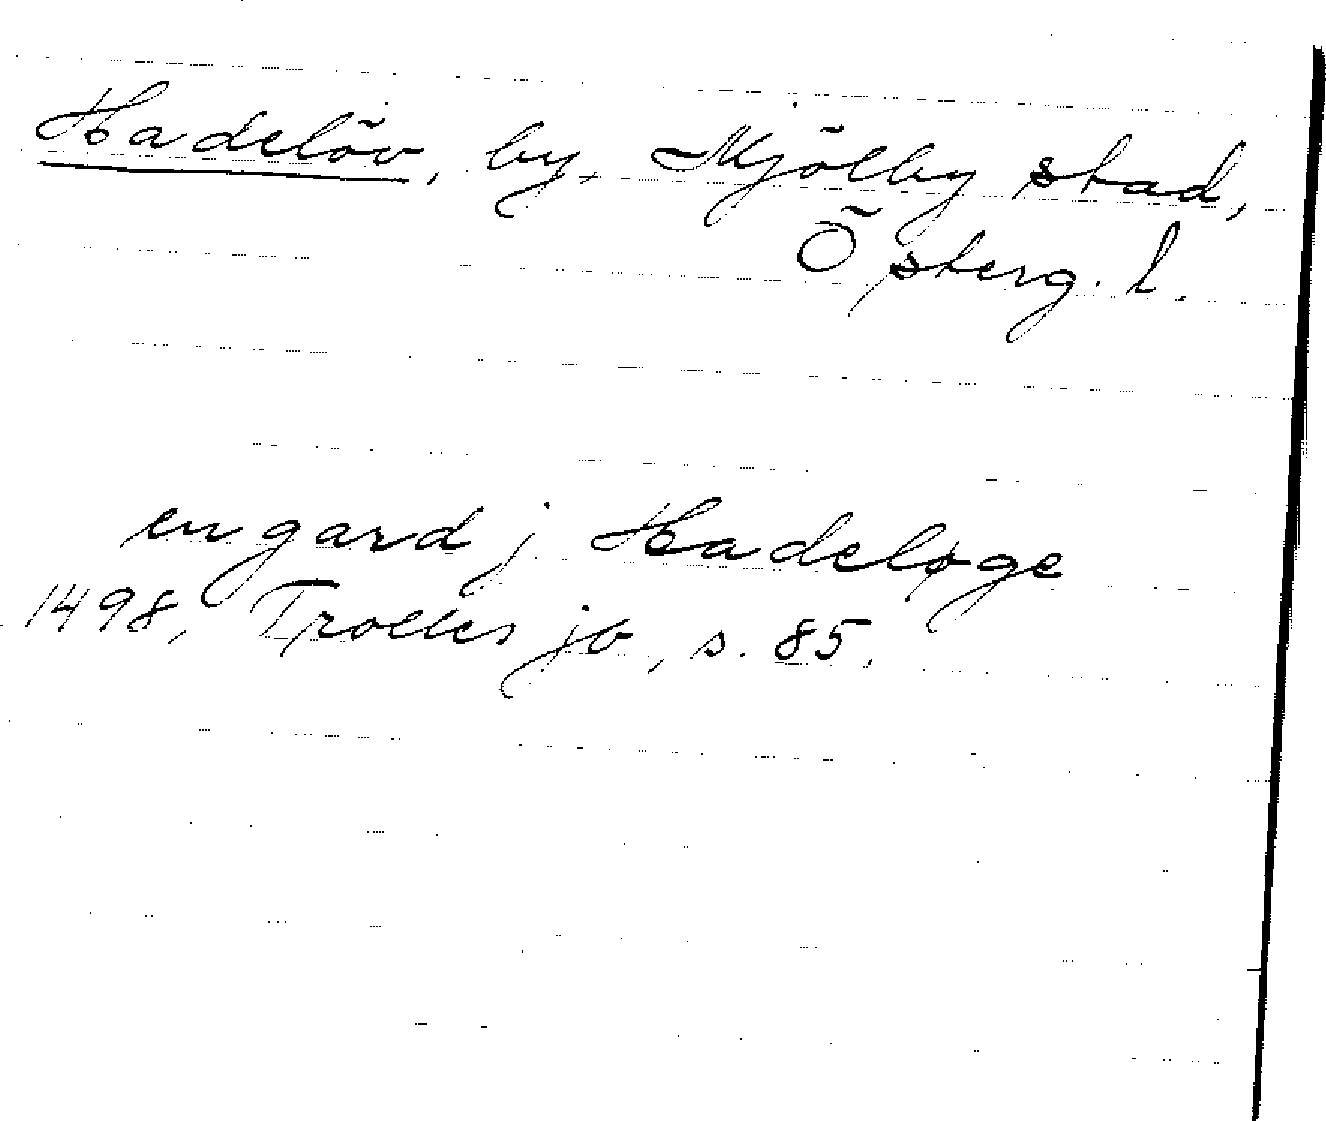 Hadelöv, by, Mjölby stad,
Österg. l.
en gard j Hadeløge
1498, Trolles jb, s. 85.